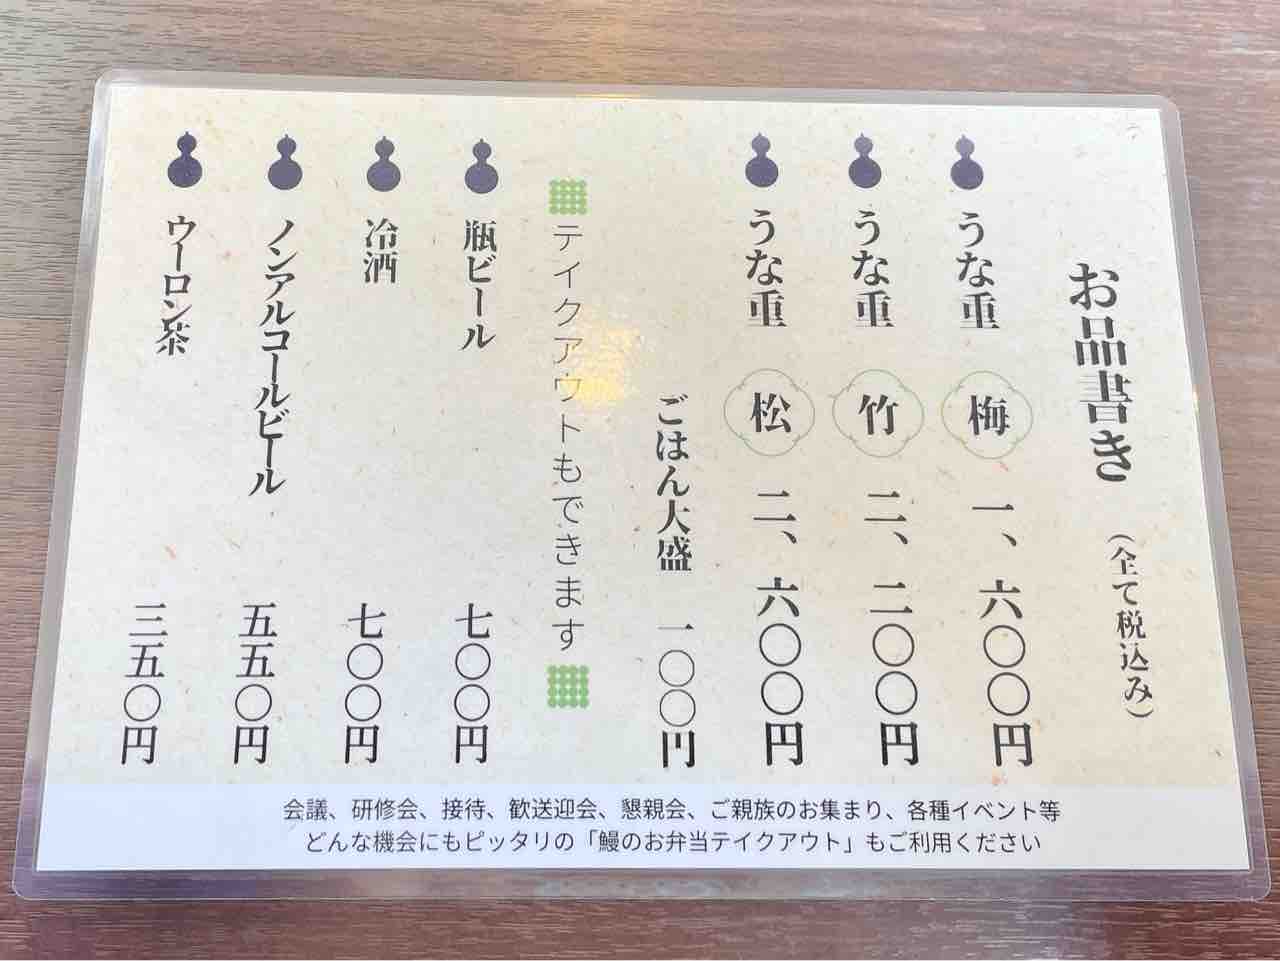 お品書き（全て税込み）
うな重 梅 一、六〇〇円
うな重 竹 二、二〇〇円
うな重 松 二、六〇〇円
ごはん大盛 一〇〇円
テイクアウトもできます
瓶ビール 七〇〇円
冷酒 七〇〇円
ノンアルコールビール 五五〇円
ウーロン茶 三五〇円
会議、研修会、接待、歓送迎会、懇親会、ご親族のお集まり、各種イベント等
どんな機会にもピッタリの「鰻のお弁当テイクアウト」もご利用ください